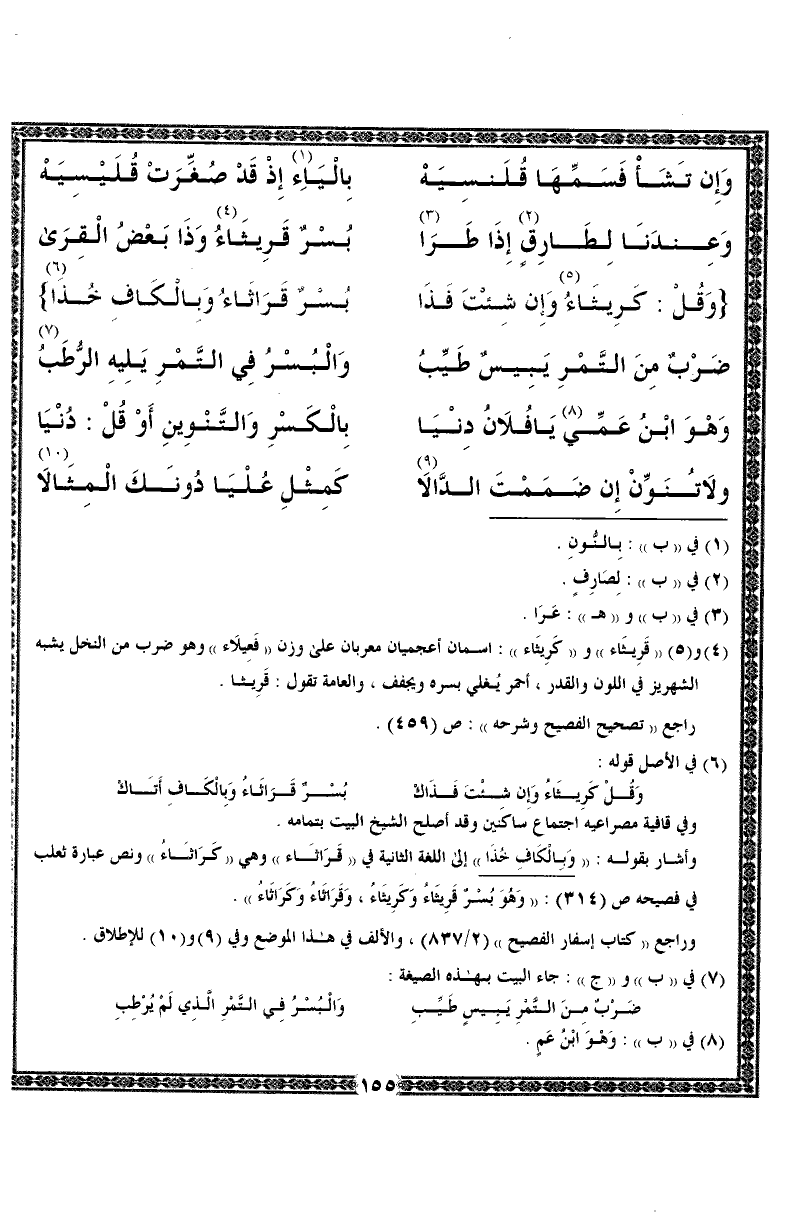 وَإِن تَشَـأْ فَسَـمِّـهَا قُلَنسِـيَهْ بِالْيَاءِ (١) إِذْ قَدْ صُغِّرَتْ قُلَيْسِيَهْ
وَعِـندَنَـا لِطَـارِقٍ (٢) إِذَا طَـرَا (٣) بُسْرٌ قَرِيثَاءُ (٤) وَذَا بَعْضُ الْقِرَىٰ
{وَقُلْ : كَرِيثَاءُ (٥) وَإِن شِئْتَ فَذَا بُسْرٌ قَرَاثَاءُ وَبِالْكَافِ خُذَا} (٦)
ضَرْبٌ مِنَ التَّمْرِ يَبِيسٌ طَيِّبُ وَالْبُسْرُ فِي التَّمْرِ يَلِيهِ الرُّطَبُ (٧)
وَهْوَ ابْنُ عَمِّي (٨) يَافُلَانُ دِنْيَا بِالْكَسْرِ وَالتَّنْوِينِ أَوْ قُلْ : دُنْيَا
ولَاتُنَوِّنْ إِن ضَمَمْتَ الدَّالَا (٩) كَمِثْلِ عُلْيَا دُونَكَ الْمِثَالَا (١٠)
(١) في «ب» : بِالنُّونِ .
(٢) في «ب» : لِصَارِفٍ .
(٣) في «ب» و «هـ» : عَرَا .
(٤)و(٥) «قَرِيثَاء» و «كَرِيثَاء» : اسمان أعجميان معربان على وزن «فَعِيلَاء» وهو ضرب من النخل يشبه
الشهريز في اللون والقدر ، أحمر يُغلي بسره ويجفف ، والعامة تقول : قَرِيثا .
راجع «تصحيح الفصيح وشرحه» : ص (٤٥٩) .
(٦) في الأصل قوله :
وَقُلْ كَرِيثَاءُ وَإِن شِئْتَ فَذَاكْ بُسْرٌ قَرَاثَاءُ وَبِالْكَافِ أَتَاكْ
وفي قافية مصراعيه اجتماع ساكنين وقد أصلح الشيخ البيت بتمامه .
وأشار بقوله : «وَبِالْكَافِ خُذَا» إلى اللغة الثانية في «قَرَاثَاء» وهي «كَرَاثَاءُ» ونص عبارة ثعلب
في فصيحه ص (٣١٤) : «وَهُوَ بُسْرٌ قَرِيثَاءُ وَكَرِيثَاءُ ، وَقَرَاثَاءُ وَكَرَاثَاءُ» .
وراجع «كتاب إسفار الفصيح» (٨٣٧/٢) ، والألف في هذا الموضع وفي (٩)و(١٠) للإطلاق .
(٧) في «ب» و «ج» : جاء البيت بهذه الصيغة :
ضَرْبٌ مِنَ التَّمْرِ يَبِيسٍ طَيِّبِ وَالْبُسْرُ فِي التَّمْرِ الَّذِي لَمْ يُرْطِبِ
(٨) في «ب» : وَهْوَ ابْنُ عَمٍ .
١٥٥